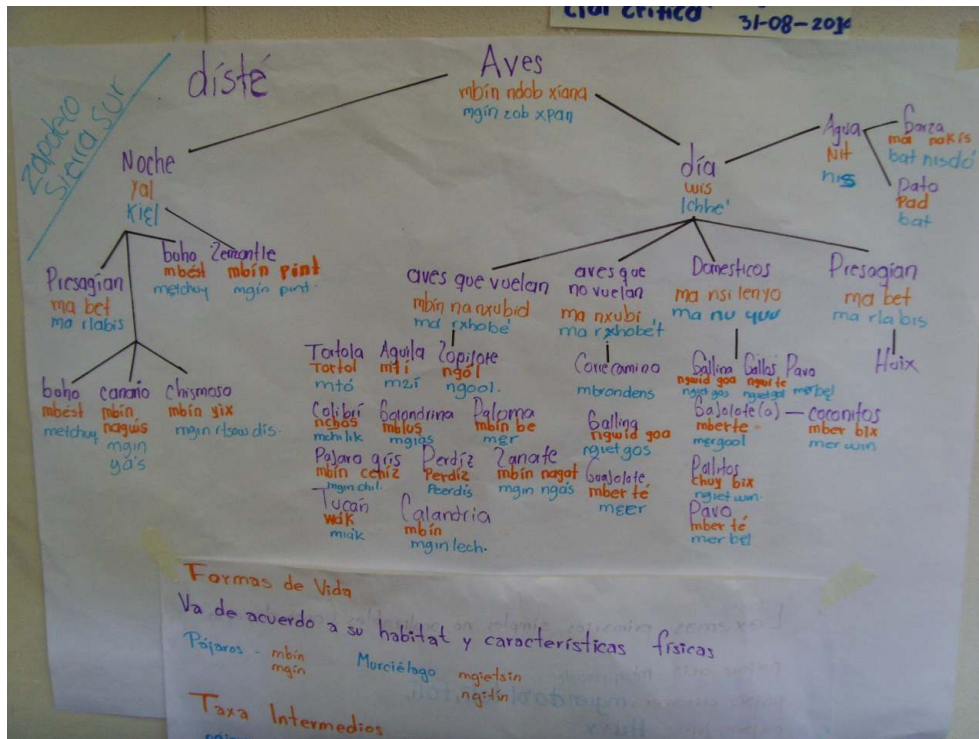 cial crítica
31-08-2016
Zapoteco
Sierra Sur
dísté
Aves
mbín ndob xiana
mgín zob xpan
Noche
yal
kiel
día
wis
lchhe'
Agua
Nit
nis
Garza
mai nakis
bat nisdó'
Pato
Pad
bat
Presagian
ma bet
ma rlabis
boho
mbést
metchuy
Zenzontle
mbín pint
mgín pint.
boho
mbést
metchuy
canario
mbín
nagùs
mgin
yá's
chismoso
mbín yix
mgin rtsow dis.
aves que vuelan
mbín nanxubid
ma rxhobe'
aves que
no vuelan
ma nxubi
ma rxhobe't
Domesticos
ma nsi lenyo
ma nu yuu
Presagian
ma bet
ma rlabis
Huix
Tortola
Tortol
mtó
Aguila
mtí
mzí
Zopilote
ngól
ngool.
Colibrí
nchos
mchilik
Golondrina
mblus
mgias
Paloma
mbín be
mer
Pajaro gris
mbín cehiz
mgin chil.
Perdíz
Perdíz
Peerdís
Zanate
mbín nagat
mgin ngás
Tucán
wák
miák
Calandria
mbín
mgin lech.
Correcamino
mbrondens
Gallina
nguid goa
ngiet gos
Guajolote
mber té
meer
Gallina
nguid goa
ngiet gos
Gallos
nguite
ngietgol
Pavo
merbel
Gajolote(a) — coconitos
mberte
mergool
mber bix
mer win
Pollitos
chuy bix
ngiet win.
Pavo
mber té
mer bel
Formas de Vida
Va de acuerdo a su habitat y características físicas
Pájaros - mbín
mgín
Murciélago mgietsin
ngitín
Taxa Intermedios